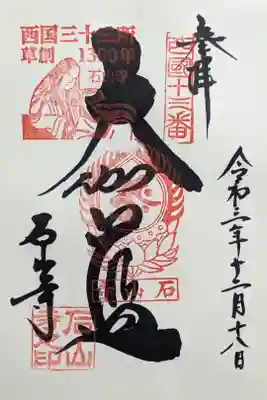 奉拝
西國十三番
令和三年十二月十八日
西国三十三所
草創1300年
石山寺
大伽藍
石山寺
石山
石山寺印